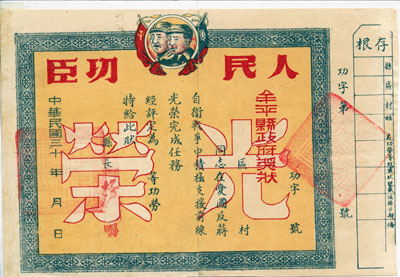 人民功臣
光榮
平縣政府獎狀
功字 號
區 村
同志在愛國反蔣
自衛戰爭中積極支援前線
光榮完成任務
經評定為 等功勞
特給此狀
縣長
中華民國三十 年 月 日
功字第 號
存根
縣
區
村